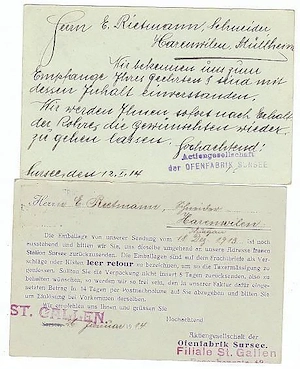 Herrn E. Rietmann, Schneider
Harenwilen, Hüttheim
Wir bekennen uns zum
Empfange Ihres geehrten 3 und sind mit
dessen Inhalt einverstanden.
Wir werden Ihnen sofort nach Erhalt
der Rohres die gewünschten wieder
zu gehen lassen. Hochachtend!
Actiengesellschaft
der OFENFABRIK SURSEE
Sursee den 12.1.14
Herrn E. Rietmann, Schneider
Harenwilen
Die Emballage von unserer Sendung vom 18 Dez. 1913 ist noch
ausstehend und bitten wir Sie, uns dieselbe umgehend an unsere Adresse franco
Station Sursee zurückzusenden. Die Emballagen sind auf dem Frachtbriefe als Ver-
schläge oder Kisten leer retour zu bezeichnen, um so die Taxermässigung zu
geniessen. Sollten Sie die Verpackung nicht innert 8 Tagen zurücksenden, also zu
behalten wünschen, so werden wir so frei sein, den in unserer Faktur dafür einge-
setzten Betrag in 14 Tagen per Postnachnahme auf Sie abzugeben und bitten Sie
um Einlösung bei Vorkommen derselben.
Wir empfehlen uns Ihnen und grüssen Sie
Hochachtend
ST. GALLEN
Januar 1914
Actiengesellschaft der
Ofenfabrik Sursee.
Filiale St. Gallen